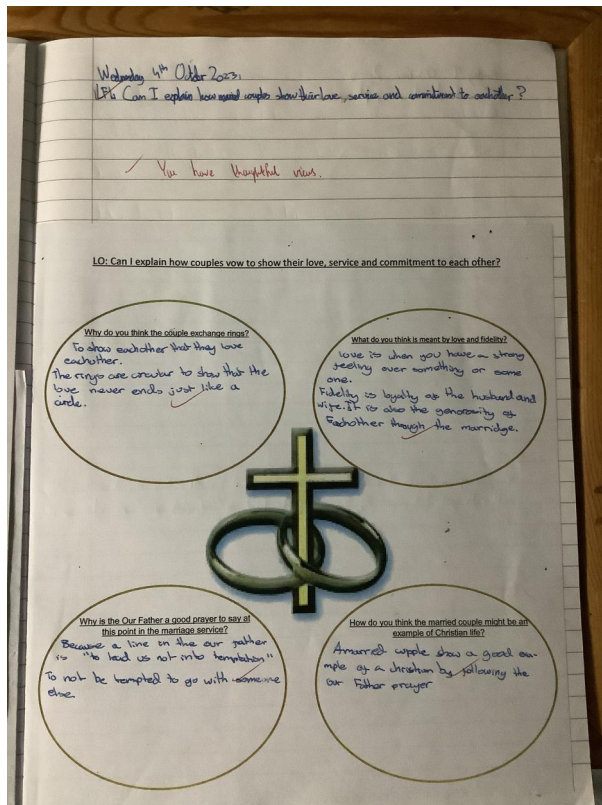 Wednesday 4th October 2023.
LF: Can I explain how married couples show their love, service and commitment to eachother?
✓ You have thoughtful views.
LO: Can I explain how couples vow to show their love, service and commitment to each other?
Why do you think the couple exchange rings?
To show eachother that they love
eachother.
The rings are circular to show that the
love never ends just like a
circle.
What do you think is meant by love and fidelity?
love is when you have a strong
feeling over something or some
one.
Fidelity is loyalty of the husband and
wife. It is also the generosity of
Eachother through the marridge.
Why is the Our Father a good prayer to say at
this point in the marriage service?
Because a line in the our father
is "to lead us not into temptation"
To not be tempted to go with someone
else.
How do you think the married couple might be an
example of Christian life?
A married copple show a good exa-
mple of a christian by following the
our Father prayer